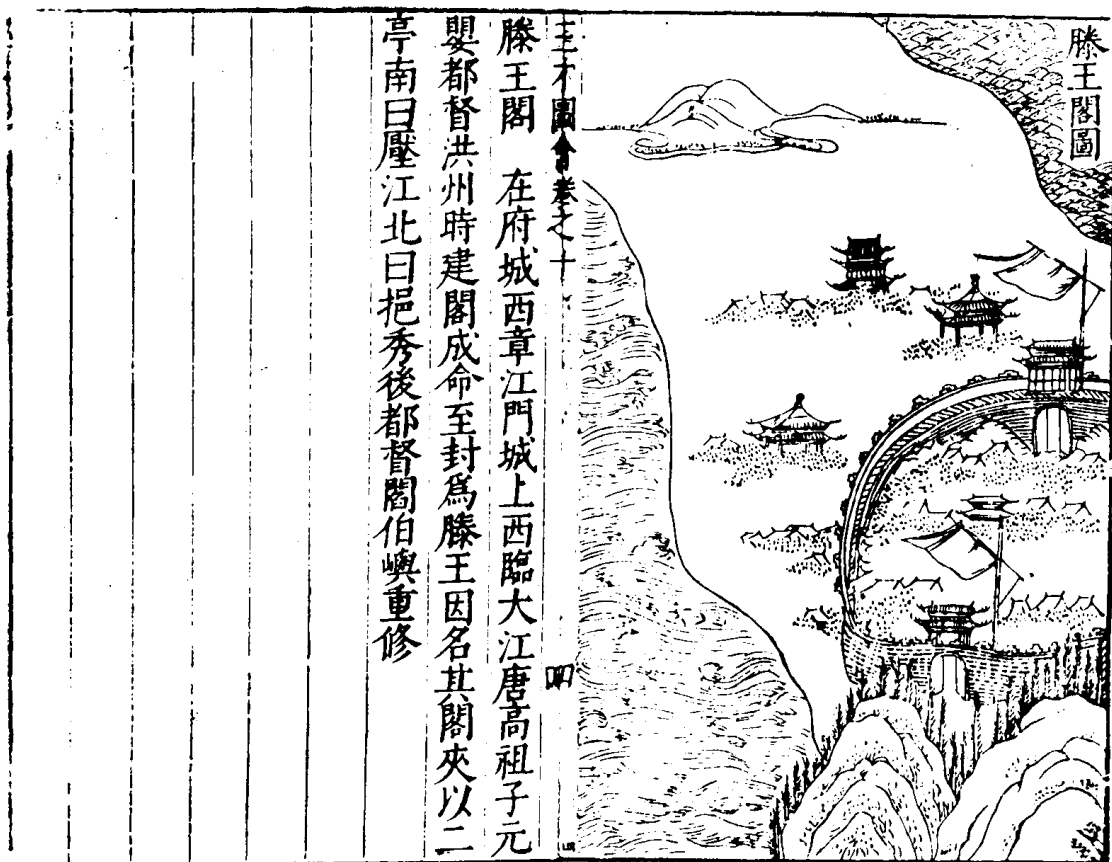 滕王閣圖
三才圖會卷之十
四
滕王閣　在府城西章江門城上西臨大江唐高祖子元
嬰都督洪州時建閣成命至封爲滕王因名其閣夾以二
亭南曰壓江北曰挹秀後都督閻伯嶼重修